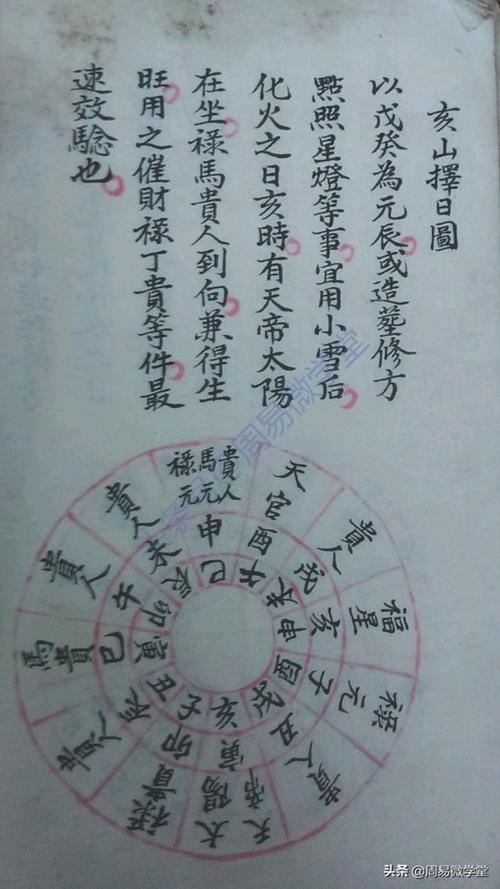 亥山擇日圖
以戊癸為元辰或造塟修方
點照星燈等事宜用小雪后
化火之日亥時有天帝太陽
在坐祿馬貴人到向兼得生
旺用之催財祿丁貴等件最
速效驗也
祿元 馬元 貴人
天官
貴人
福星
祿元
貴人
天帝 太陽
祿貴
貴人
馬貴
貴人
貴人
申
酉
戌
亥
子
丑
寅
卯
辰
巳
午
未
巳
午
未
申
酉
戌
亥
子
丑
寅
卯
辰
周易微学堂
头条 @周易微学堂